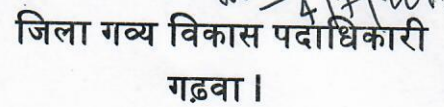 जिला गव्य विकास पदाधिकारी
गढ़वा।